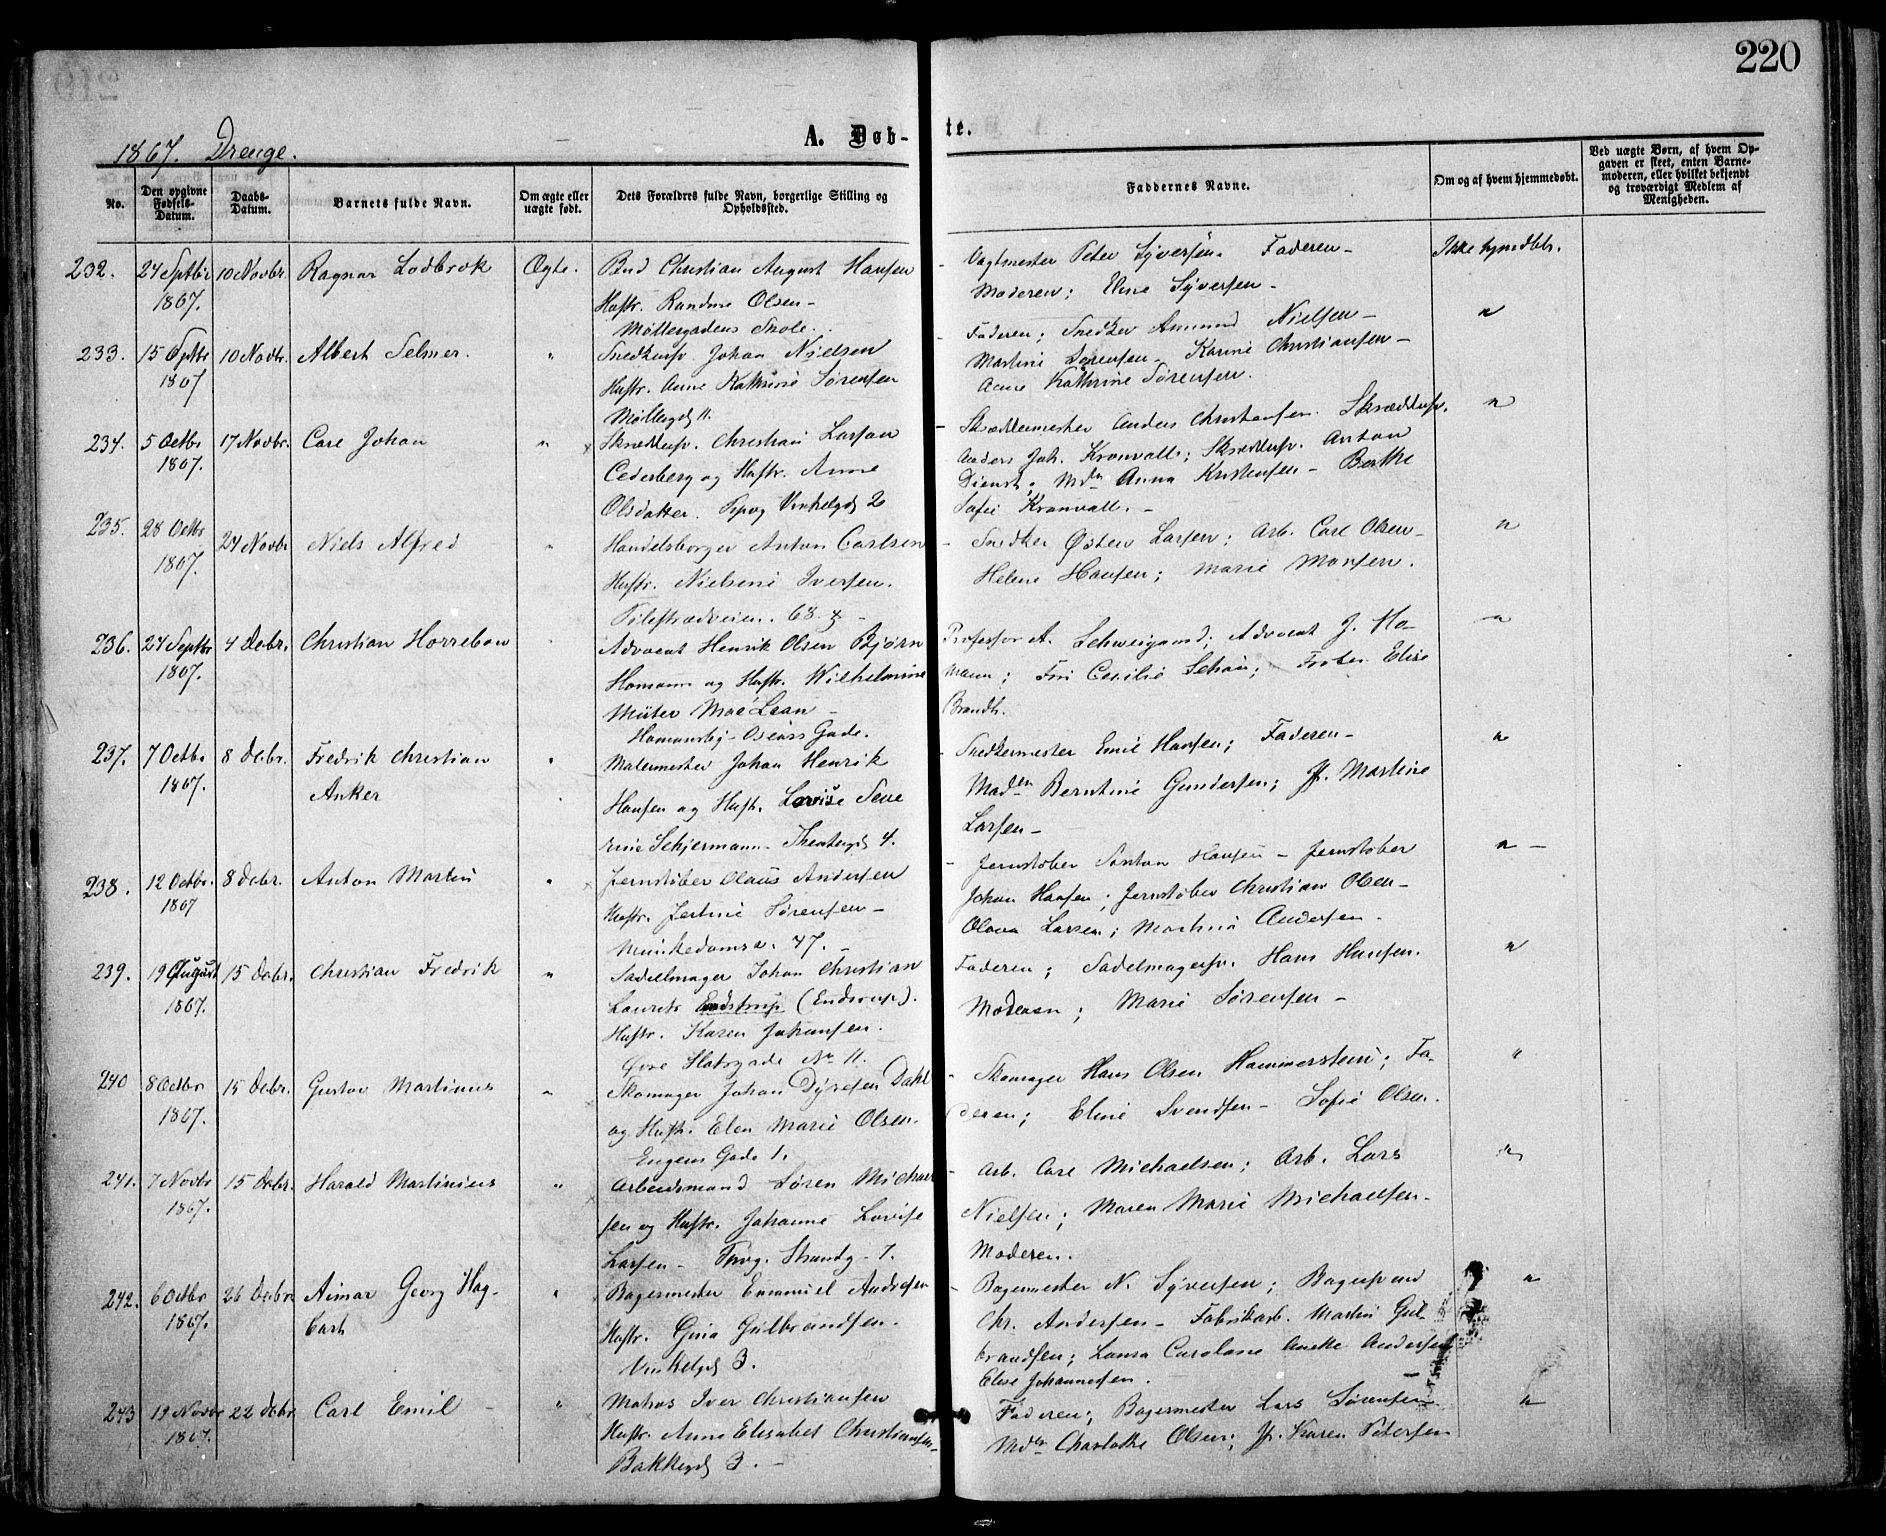 220
1867. Drenge.
A. Døb-
te.
No.
Den opgivne Fødsels-Datum.
Daabs-Datum.
Barnets fulde Navn.
Om ægte eller uægte født.
Dets Forældres fulde Navn, borgerlige Stilling og Opholdssted.
Faddernes Navne.
Om og af hvem hjemmedøbt.
Ved uægte Børn, af hvem Opgaven er skeet, enten Barnemoderen, eller hvilket bekjendt og troværdigt Medlem af Menigheden.
232. 27 Septbr 10 Novbr. Ragnar Lodbrok Ægte. Bud Christian August Hansen - Vagtmester Peter Syversen. Faderen - Ikke hjmdbt.
1867. Hustr. Randine Olsen - Moderen; Eline Syversen -
Møllergadens Skole. Faderen; Snedker Amund Nielsen - "
233. 15 Septbr 10 Novbr. Albert Selmer. " Snedkersv. Johan Nielsen Martine Sørensen - Karine Christiansen -
1867 Hustr. Anne Kathrine Sørensen Anne Kathrine Sørensen.
Møllergd 11. - Skræddermester Anders Christensen. Skræddersv. "
234. 5 Octbr 17 Novbr. Carl Johan " Skræddersv. Christian Larsen Anders Joh. Kronvall; Skræddersv. Anton
1867. Cederberg og Hustr. Anne Dienst; Mdm Anna Kristensen - Berthe
Olsdatter. Tepvg Vinkelgd 2 Sofie Kronvall. -
235. 28 Octbr 24 Novbr Niels Alfred " Handelsborger Anton Carlsen - Snedker Østen Larsen; Arb. Carl Olsen - "
1867. Hustr. Nielsine Iversen. Helene Hansen; Marie Monsen.
Pilestrædveien. 68.
236. 24 Septbr 4 Debr. Christian Horrebow Advocat Henrik Olsen Bjørn Professor A. Schweigaard; Advocat J. Ho- "
1867. Homann og Hustr. Wilhelmine mann; Frk Cecilie Schou; Frøken Elise
Müter Mac Lean - Brandt.
Homansby - Oscars Gade.
237. 7 Octbr 8 Debr. Fredrik Christian " Malermester Johan Henrik - Snedkermester Emil Hansen; Faderen - "
1867. Anker Hansen og Hustr. Lovise Seve Madm Berntine Gundersen; Jf. Martine
rine Schjermann - Theatergd 4. Larsen -
238. 12 Octbr. 8 Debr. Anton Martin " Jernstøber Olaus Andersen - Jernstøber Anton Hansen - Jernstøber " -
1867 Hustr. Jertine Sørensen - Johan Hansen; Jernstøber Christian Olsen -
Munkedamsv. 47. - Olava Larsen; Martina Andersen.
239. 19 August 15 Debr. Christian Fredrik " Sadelmager Johan Christian Faderen; Sadelmagersv. Hans Hansen. "
1867. Laurits Endstrup (Endsrup). Moderen; Marie Sørensen -
Hustr. Karen Johansen.
Øvre Slotsgade No 11.
240 8 Octbr 15 Debr. Gustav Martinius " Skomager Johan Dyresen Dahl - Skomager Hans Olsen Hammerstein; Fa- "
1867. og Hustr. Elen Marie Olsen. deren; Eline Svendsen - Sofie Olsen.
Eugens Gade 1.
241. 7 Novbr 15 Debr. Harald Martinius " Arbeidsmand Søren Michael - Arb. Carl Michaelsen; Arb. Lars "
1867. sen og Hustr. Johanne Lovise Nielsen; Maren Marie Michaelsen -
Larsen - Tørvg. Strandg - 7. Moderen.
242. 6 Octbr 26 Debr Aimar Georg Hag- " Bagermester Emanuel Andersen - Bagermester N. Syversen; Bagersvend "
1867. bart Hustr. Gina Gulbrandsen. Chr. Andersen - Fabrikarb. Martin Gul-
Vinkelgd 3. brandsen; Laura Caroline Anette Andersen
Elise Johannesen.
243 19 Novbr 22 Debr. Carl Emil - " Matros Iver Christiansen Faderen; Bagermester Lars Sørensen - "
1867. Hustr. Anne Elisabet Christiansen - Mdm Charlotte Olsen; Jf. Karen Petersen
Bakkegd 3. -